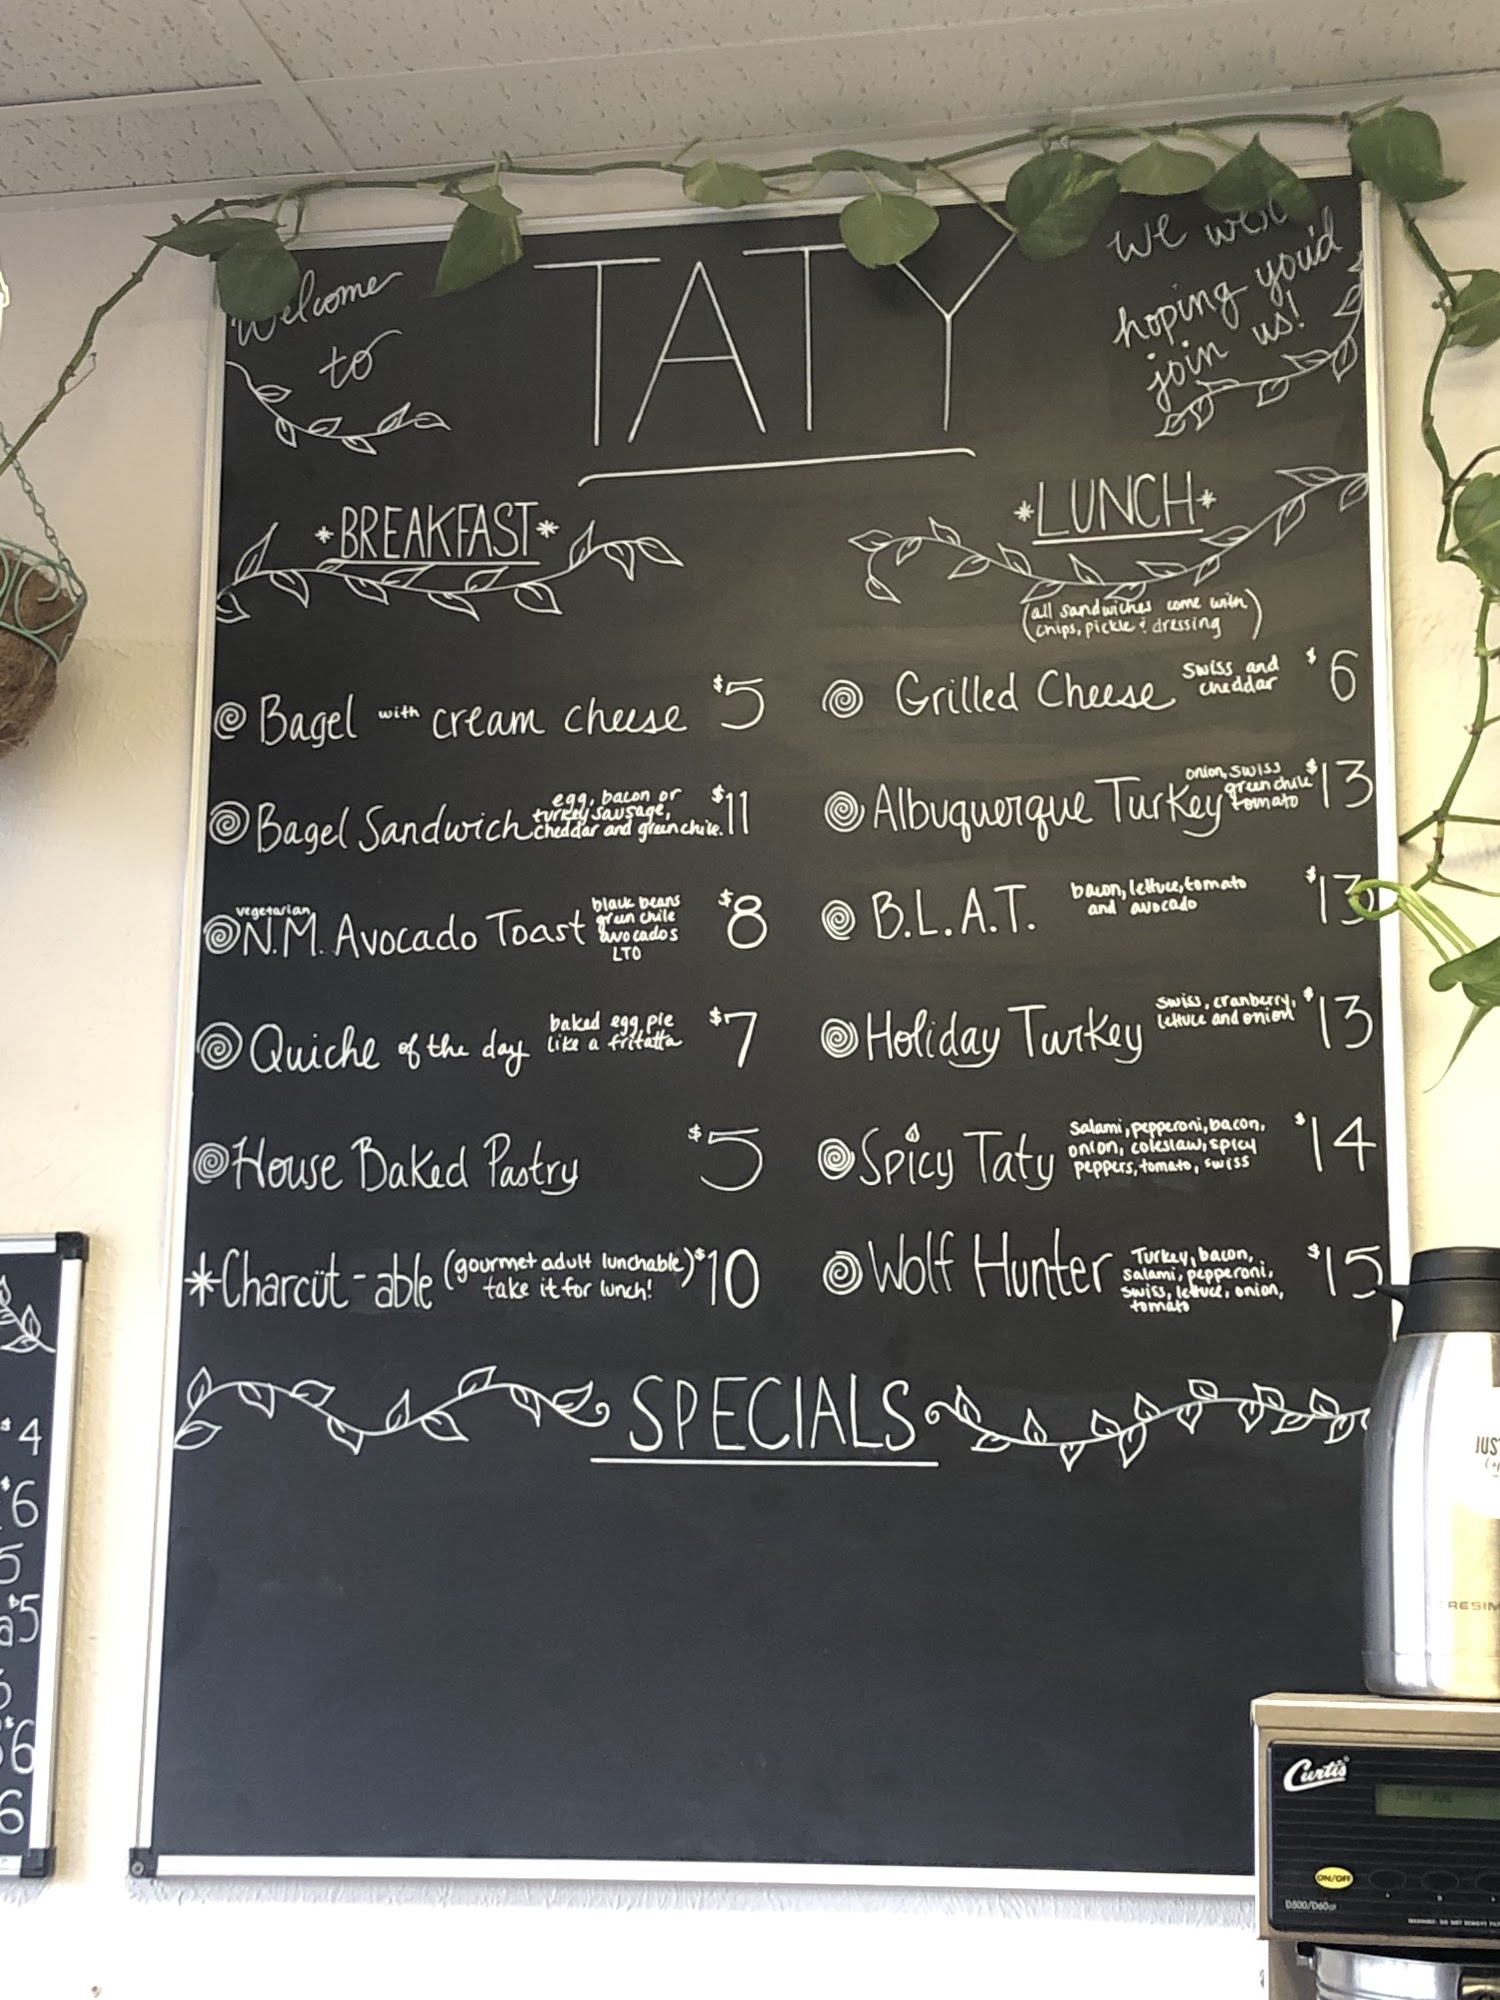 Welcome
to
TATY
we were
hoping you'd
join us!
*BREAKFAST*
Bagel with cream cheese $5
Bagel Sandwich egg, bacon or
turkey sausage,
cheddar and green chile. $11
vegetarian
N.M. Avocado Toast black beans
green chile
avocados
LTO $8
Quiche of the day baked egg pie
like a fritatta $7
House Baked Pastry $5
*Charcüt-able (gourmet adult lunchable)
take it for lunch! $10
*LUNCH*
(all sandwiches come with
chips, pickle & dressing)
Grilled Cheese swiss and
cheddar $6
Albuquerque Turkey onion, swiss
green chile
tomato $13
B.L.A.T. bacon, lettuce, tomato
and avocado $13
Holiday Turkey swiss, cranberry,
lettuce and onion $13
Spicy Taty Salami, pepperoni, bacon,
onion, coleslaw, spicy
peppers, tomato, swiss $14
Wolf Hunter Turkey, bacon,
salami, pepperoni,
swiss, lettuce, onion,
tomato $15
SPECIALS
$4
$6
5
a $5
$6
6
JUS
Curtis
ON/OFF
D500/D60GT